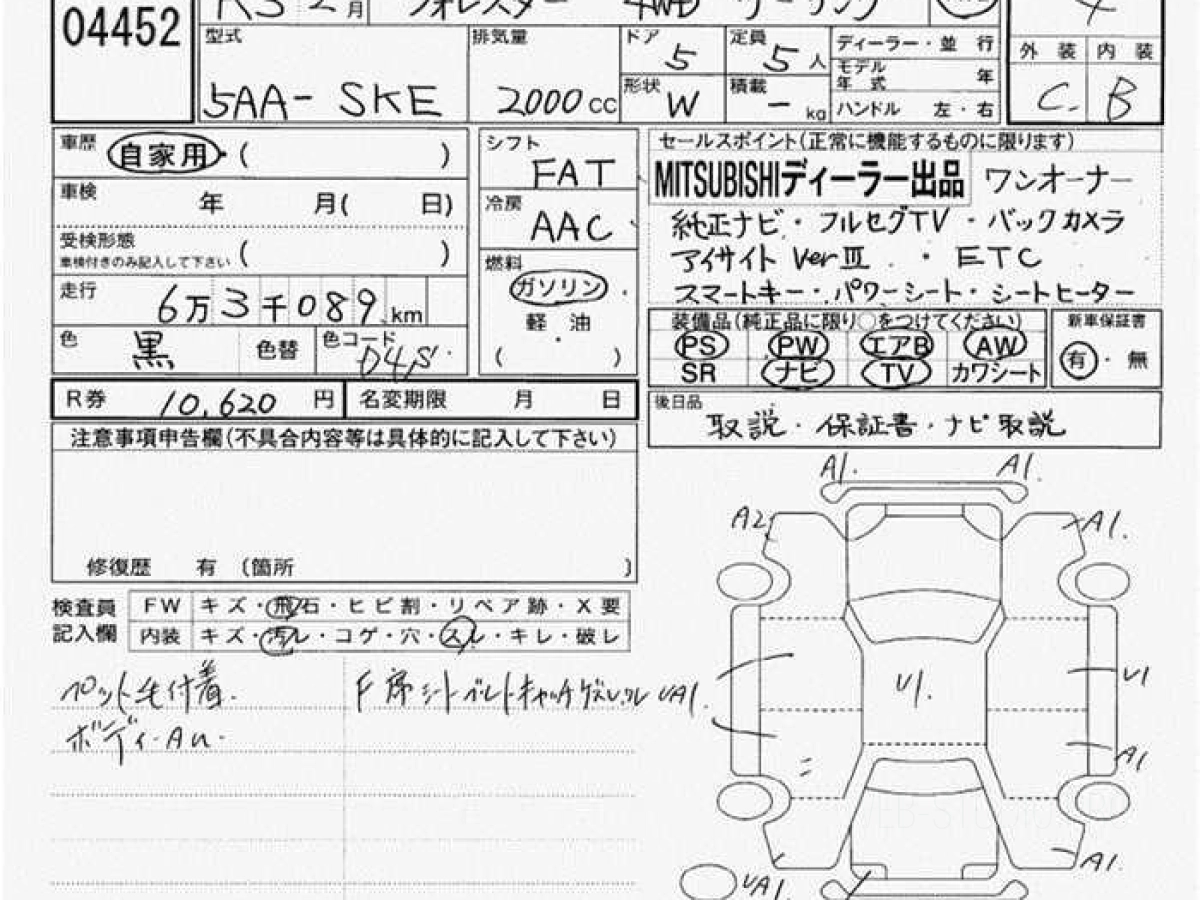 04452
R3 2月 フォレスター 4WD ツーリング 4
型式 5AA-SKE
排気量 2000cc
ドア 5 定員 5人
形状 W 積載 - kg
ディーラー・並 行
モデル年式 年
ハンドル 左・右
外 装 内 装
C. B
車歴 自家用・( )
車検 年 月( 日)
受検形態
車検付きのみ記入して下さい ( )
走行 6万3千089km
色 黒 色替 色コード D4S
シフト FAT
冷房 AAC
燃料 ガソリン・軽 油
( )
セールスポイント(正常に機能するものに限ります)
MITSUBISHIディーラー出品 ワンオーナー
純正ナビ・フルセグTV・バックカメラ
アイサイト VerⅢ・ETC
スマートキー・パワーシート・シートヒーター
装備品(純正品に限り○をつけてください)
PS PW エアB AW
SR ナビ TV カワシート
新車保証書
有・無
R券 10,620 円 名変期限 月 日
後日品
取説・保証書・ナビ取説
注意事項申告欄(不具合内容等は具体的に記入して下さい)
修復歴 有 〔箇所 〕
検査員記入欄
FW キズ・飛石・ヒビ割・リペア跡・X要
内装 キズ・汚レ・コゲ・穴・スレ・キレ・破レ
ペット毛付着.
ボディ・AU.
F席シートベルトキャッチ
A1. A1.
A2 A1.
U1. U1
UA1.
A1
A1.
UA1.